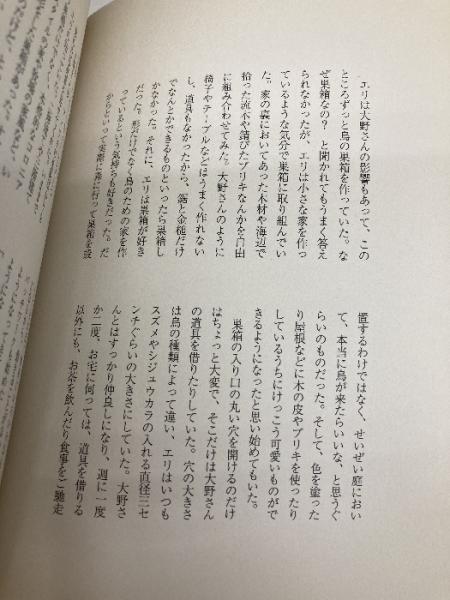 エリは大野さんの影響もあって、この
ところずっと鳥の巣箱を作っていた。な
ぜ巣箱なの？　と聞かれてもうまく答え
られなかったが、エリは小さな家を作っ
ているような気分で巣箱に取り組んでい
た。家の裏においてあった木材や海辺で
拾った流木や錆びたブリキなんかを自由
に組み合わせてみた。大野さんのように
椅子やテーブルなどはうまく作れない
し、道具もなかったから、鋸と金槌だけ
でなんとかできるものといったら巣箱し
かなかった。それに、エリは巣箱が好き
だった。形だけでなく鳥のための家を作
っているという気持ちも好きだった。だ
からといって実際に森に行って巣箱を設
置するわけではなく、せいぜい庭におい
て、本当に鳥が来たらいいな、と思うぐ
らいのものだった。そして、色を塗った
り屋根などに木の皮やブリキを使ったり
しているうちにけっこう可愛いものがで
きるようになったと思い始めてもいた。
巣箱の入り口の丸い穴を開けるのだけ
はちょっと大変で、そこだけは大野さん
の道具を借りたりしていた。穴の大きさ
は鳥の種類によって違い、エリはいつも
スズメやシジュウカラの入れる直径三セ
ンチぐらいの大きさにしていた。大野さ
んとはすっかり仲良しになり、週に一度
か二度、お宅に伺っては、道具を借りる
以外にも、お茶を飲んだり食事をご馳走